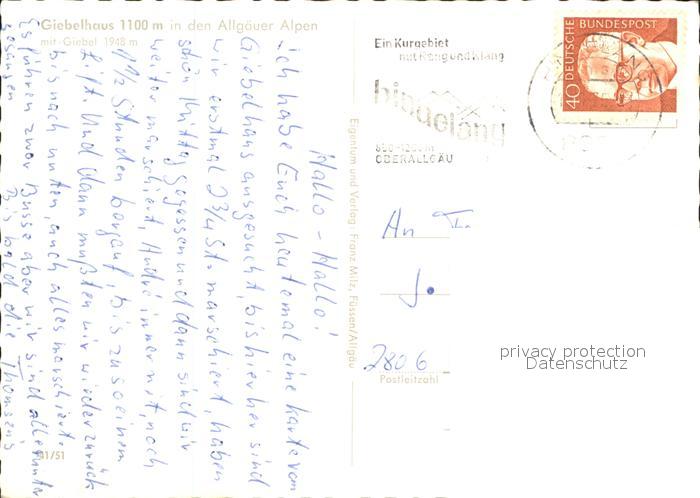 Giebelhaus 1100 m in den Allgäuer Alpen
mit Giebel 1948 m
Hallo - Hallo!
ich habe Euch heute mal eine Karte vom
Giebelhaus ausgesucht, bis hierher sind
wir erstmal 2 3/4 St. marschiert, haben
schön Mittag gegessen und dann sind wir
weiter marschiert, André immer mit, noch
1 1/2 Stunden bergauf, bis zu so einem
Lift. Und dann mußten wir wieder zurück
bis nach unten, auch alles marschiert.
Es führen zwar Busse aber wir sind alle munter
gegangen Bis bald die Thomsen's
41/51
Eigentum und Verlag: Franz Milz, Füssen/Allgäu
Ein Kurgebiet
mit Rang und Klang
hindelang
850-1200 m
OBERALLGÄU
DEUTSCHE BUNDESPOST
40
An
2806
Postleitzahl
privacy protection
Datenschutz